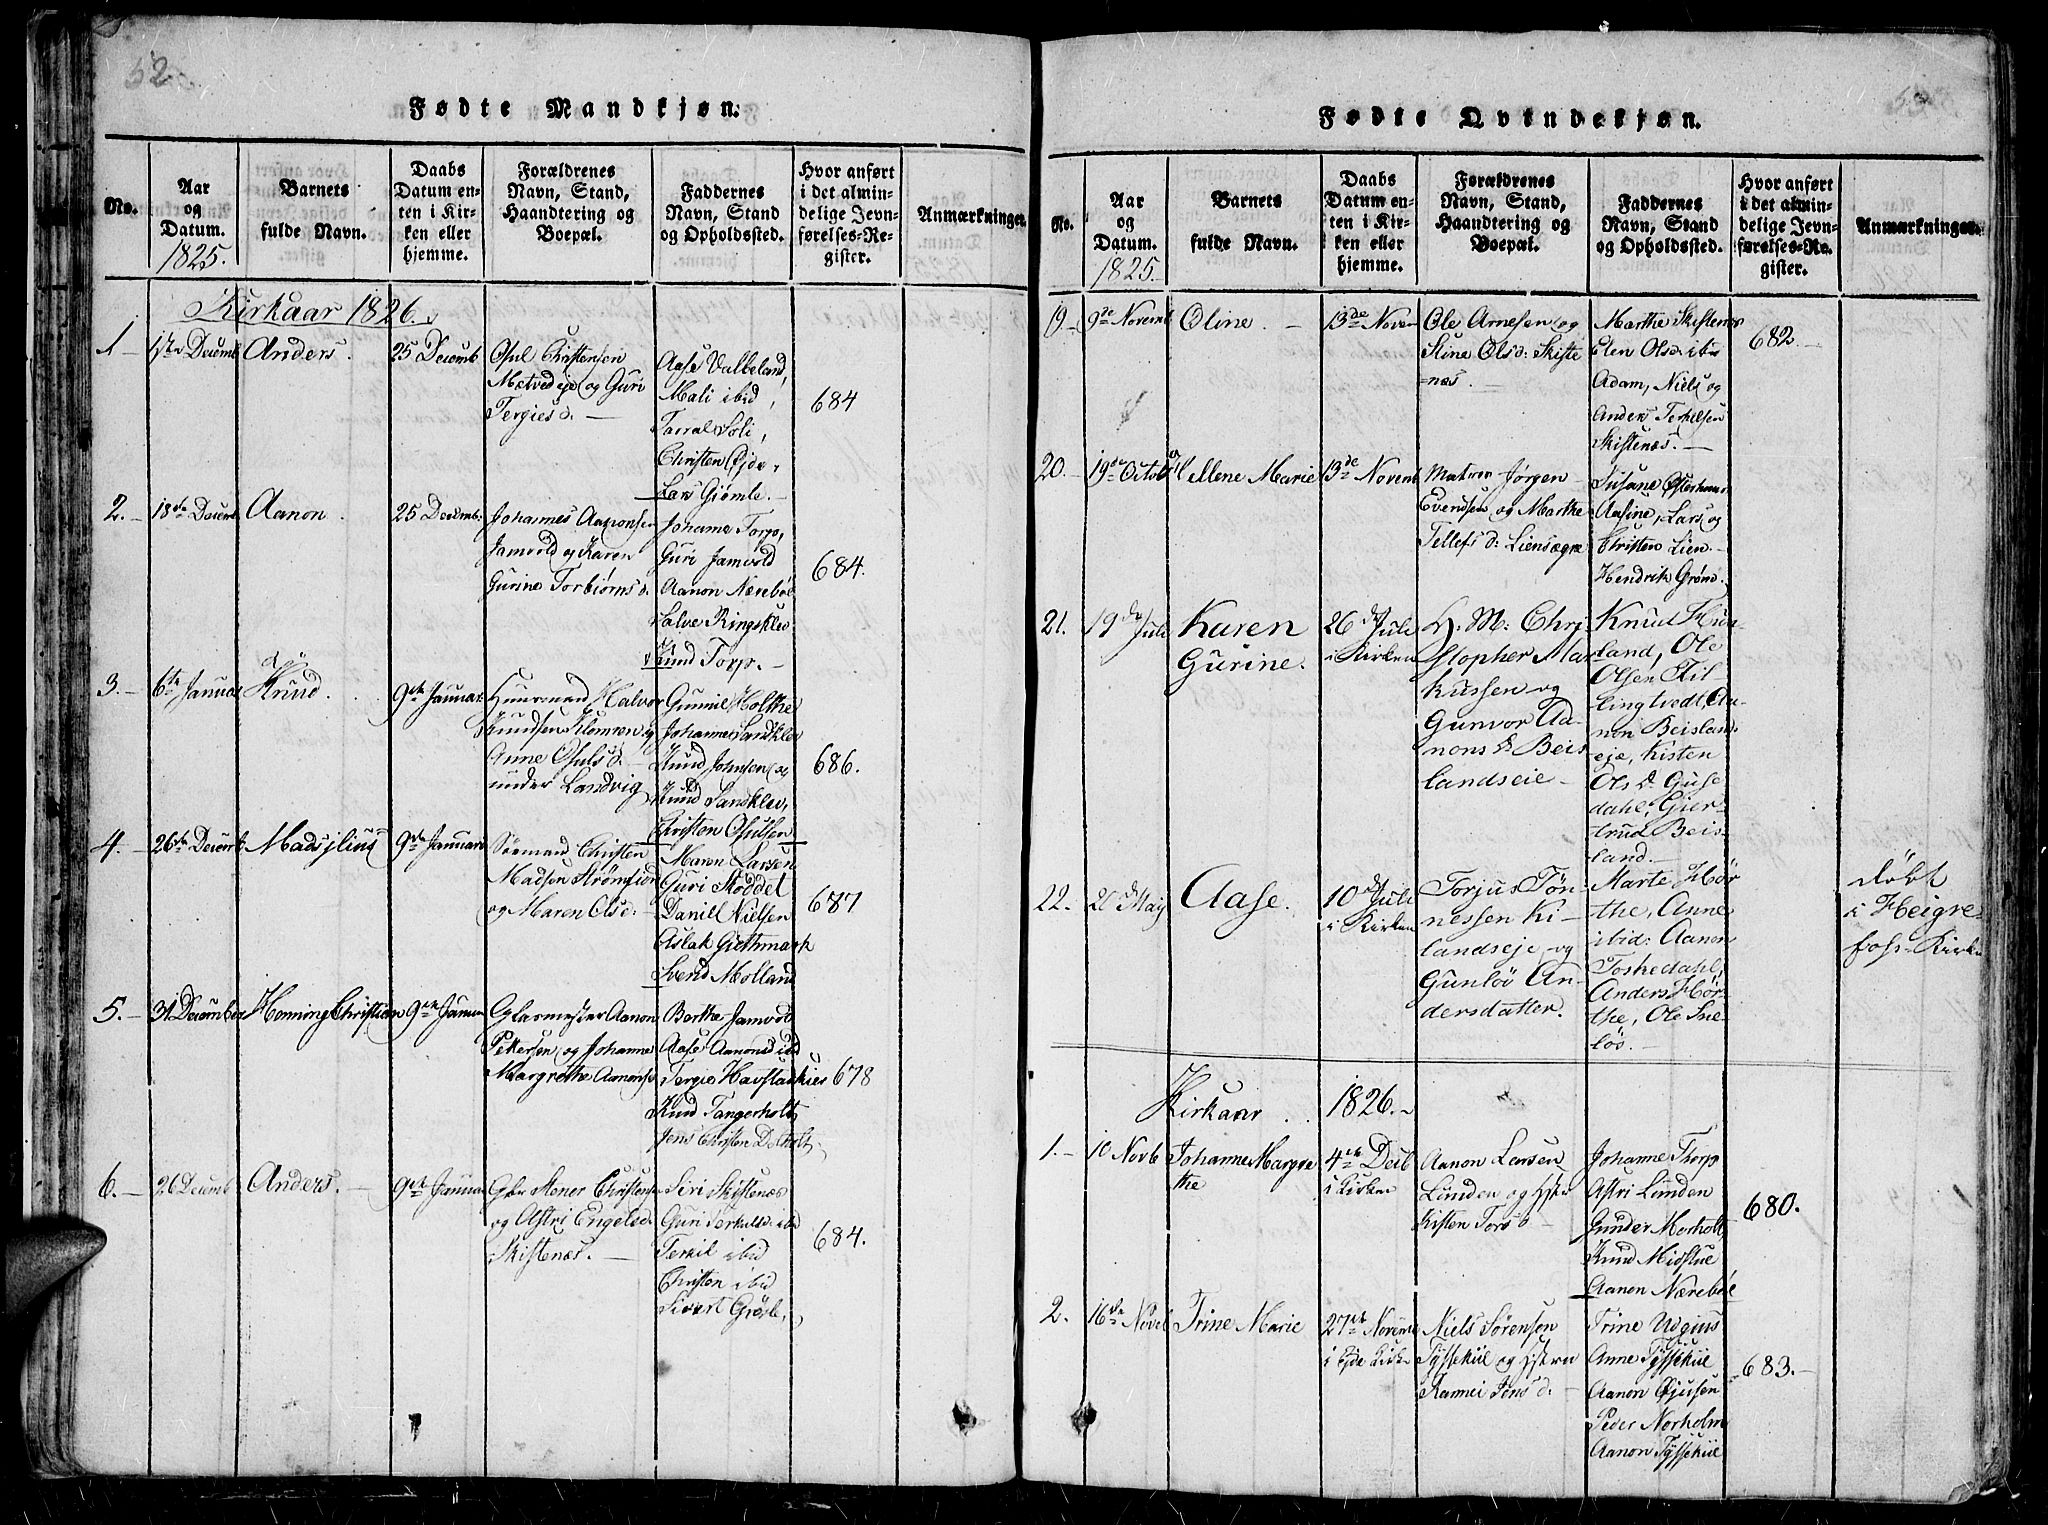 52
Fødte Mandkjøn.
No.
Aar
og
Datum.
1825.
Barnets
fulde Navn.
Daabs
Datum en-
ten i Kir-
ken eller
hjemme.
Forældrenes
Navn, Stand,
Haandtering og
Boepæl.
Faddernes
Navn, Stand
og Opholdssted.
Hvor anført
i det almin-
delige Jevn-
førelses-Re-
gister.
Anmærkninger.
Kirkaar 1826.
1
17de Decemb
Anders.
25 Decemb
Osul Christensen
Mætvedeje og Guri
Tergiesd.
Aase Valbeland,
Mali ibid,
Tarral Soli,
Christen Eyde,
Lars Giømle.
684
2.
18de Decemb
Aanon.
25 Decemb.
Johannes Aanonsen
Jamvold og Karen
Gurine Torbiørnsd.
Johanne Torp,
Guri Jamvold
Aanon Nærebøe
Salve Ringsklev
Knud Torp.
684.
3.
6te Januar
Knud.
9de Januar.
Huusmand Halvor
Knudsen Klomren og
Anne Osulsd.
under Landvig
Gunnil Molthe
Johannes Sandklev
Knud Johnsen
Knud Sandklev,
Christen Osulsen
686.
4.
26de Decemb
Madsjlius
9de Januari
Sømand Christen
Madsen Strømsund
og Maren Olsd.
Maren Larsen
Guri Stoddet
Daniel Nielsen
Aslak Guthmark
Svend Molland
687
5.
31 December
Henning Christian
9de Januar
Glarmester Aanon
Pettersen og Johanne
Margrethe Aanonsd
Berthe Jamvold
Aase Aanonsd ibd
Tergie Havstad
Knud Tangerholt
Jens Christen Dolholt
678
6.
26 Decemb
Anders.
9de Januar
Christensen
og Astri Engelsd.
Skistenæs.
Siri Skistenæs
Guri Terkelsd. ibd
Terkil ibid
Christen ibid
Sivert Grøsle,
684.
Fødte Qvindekjøn.
No.
Aar
og
Datum.
1825.
Barnets
fulde Navn.
Daabs
Datum en-
ten i Kir-
ken eller
hjemme.
Forældrenes
Navn, Stand,
Haandtering og
Boepæl.
Faddernes
Navn, Stand
og Opholdssted.
Hvor anført
i det almin-
delige Jevn-
førelses-Re-
gister.
Anmærkninger.
19.
9de Novemb
Oline.
13de Novem
Ole Arnesen og
Stine Olsd: Skiste
=næs.
Marthe Skistenæs
Elen Olsd: ibd
Adam, Niels og
Anders Terkelsen
Skistenæs.
682.
20.
19de Octob
Ellene Marie
13de Novemb
Matros Jørgen
Evendsen og Marthe
Tellefsd: Liensøgre
Susane Østerhuus
Aasine, Lars og
Christen Lien.
Hendrik Grøm.
21.
19de Juli
Karen
Gurine.
26de Juli
i Kirken
H. M: Chri
stopher Mar
kussen og
Gunvor Aa-
nons D Beis
landseie
Knud Hun-
land, Ole
Olsen Til-
lingtvedt, Aa-
non Beisland-
eje, Kisten
Ols D Guse-
dahl, Gier-
trud Beis-
land.
22.
20de Maij
Aase.
10de Juli
i Kirken
Torjus Tøn-
nessen Ki-
landseje og
Gunlø An-
dersdatter.
Marte Hør
the, Anne
ibid: Aanon
Toskedahl,
Anders Hør-
the, Ole Sne-
løs.
døbt
i Heigre-
fohs-Kirke
Kirkaar 1826.
1.
10 Novb
Johanne Margre
the
4de Decb
i Kirken
Aanon Larsen
Lunden og Hstr
Kisten Torsd
Johanne Thorp
Astri Lunden
Gunder Morholt
Knud Midstue
Aanon Nærebøe
680.
2.
16de Novb
Trine Marie
27de Novemb
i Eide Kirke
Niels Sørensen
Tyssekiil og Hstrue
Rannei Jonsd.
Trine Udgius
Anne Tyssekiil
Aanon Øjusen
Peder Norholm
Aanon Tyssekiil
683.